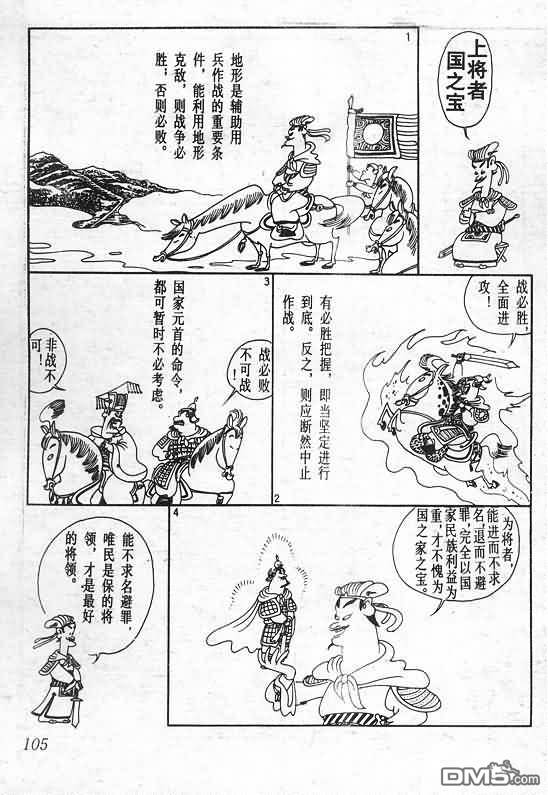 上将者
国之宝
1
地形是辅助用
兵作战的重要条
件，能利用地形
克敌，则战争必
胜；否则必败。
战必胜，
全面进
攻！
有必胜把握，即当坚定进行
到底。反之，则应断然中止
作战。
2
3
国家元首的命令，
都可暂时不必考虑。
战必败
不可战！
非战不
可！
4
为将者，
能进而不求
名，退而不避
罪，完全以国
家民族利益为
重，才不愧为
国之家之宝。
能不求名避罪，
唯民是保的将
领，才是最好
的将领。
105
DM5.com